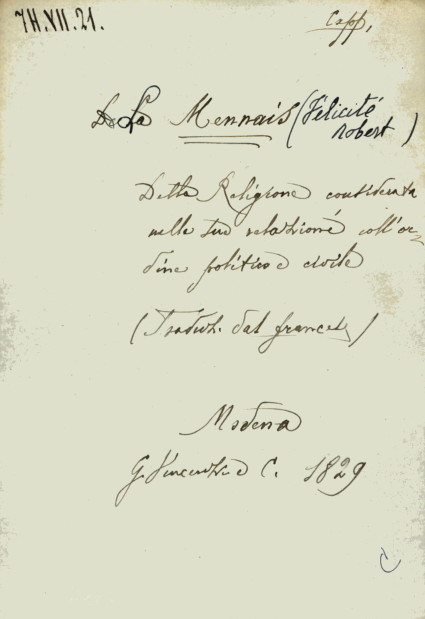 7H.VII.21.
Capp.
La Mennais (Félicité
Robert)
Della Religione considerata
nelle sue relazioni coll'or-
dine politico e civile
(Traduz. dal frances.)
Modena
G. Vincenzi e C. 1829